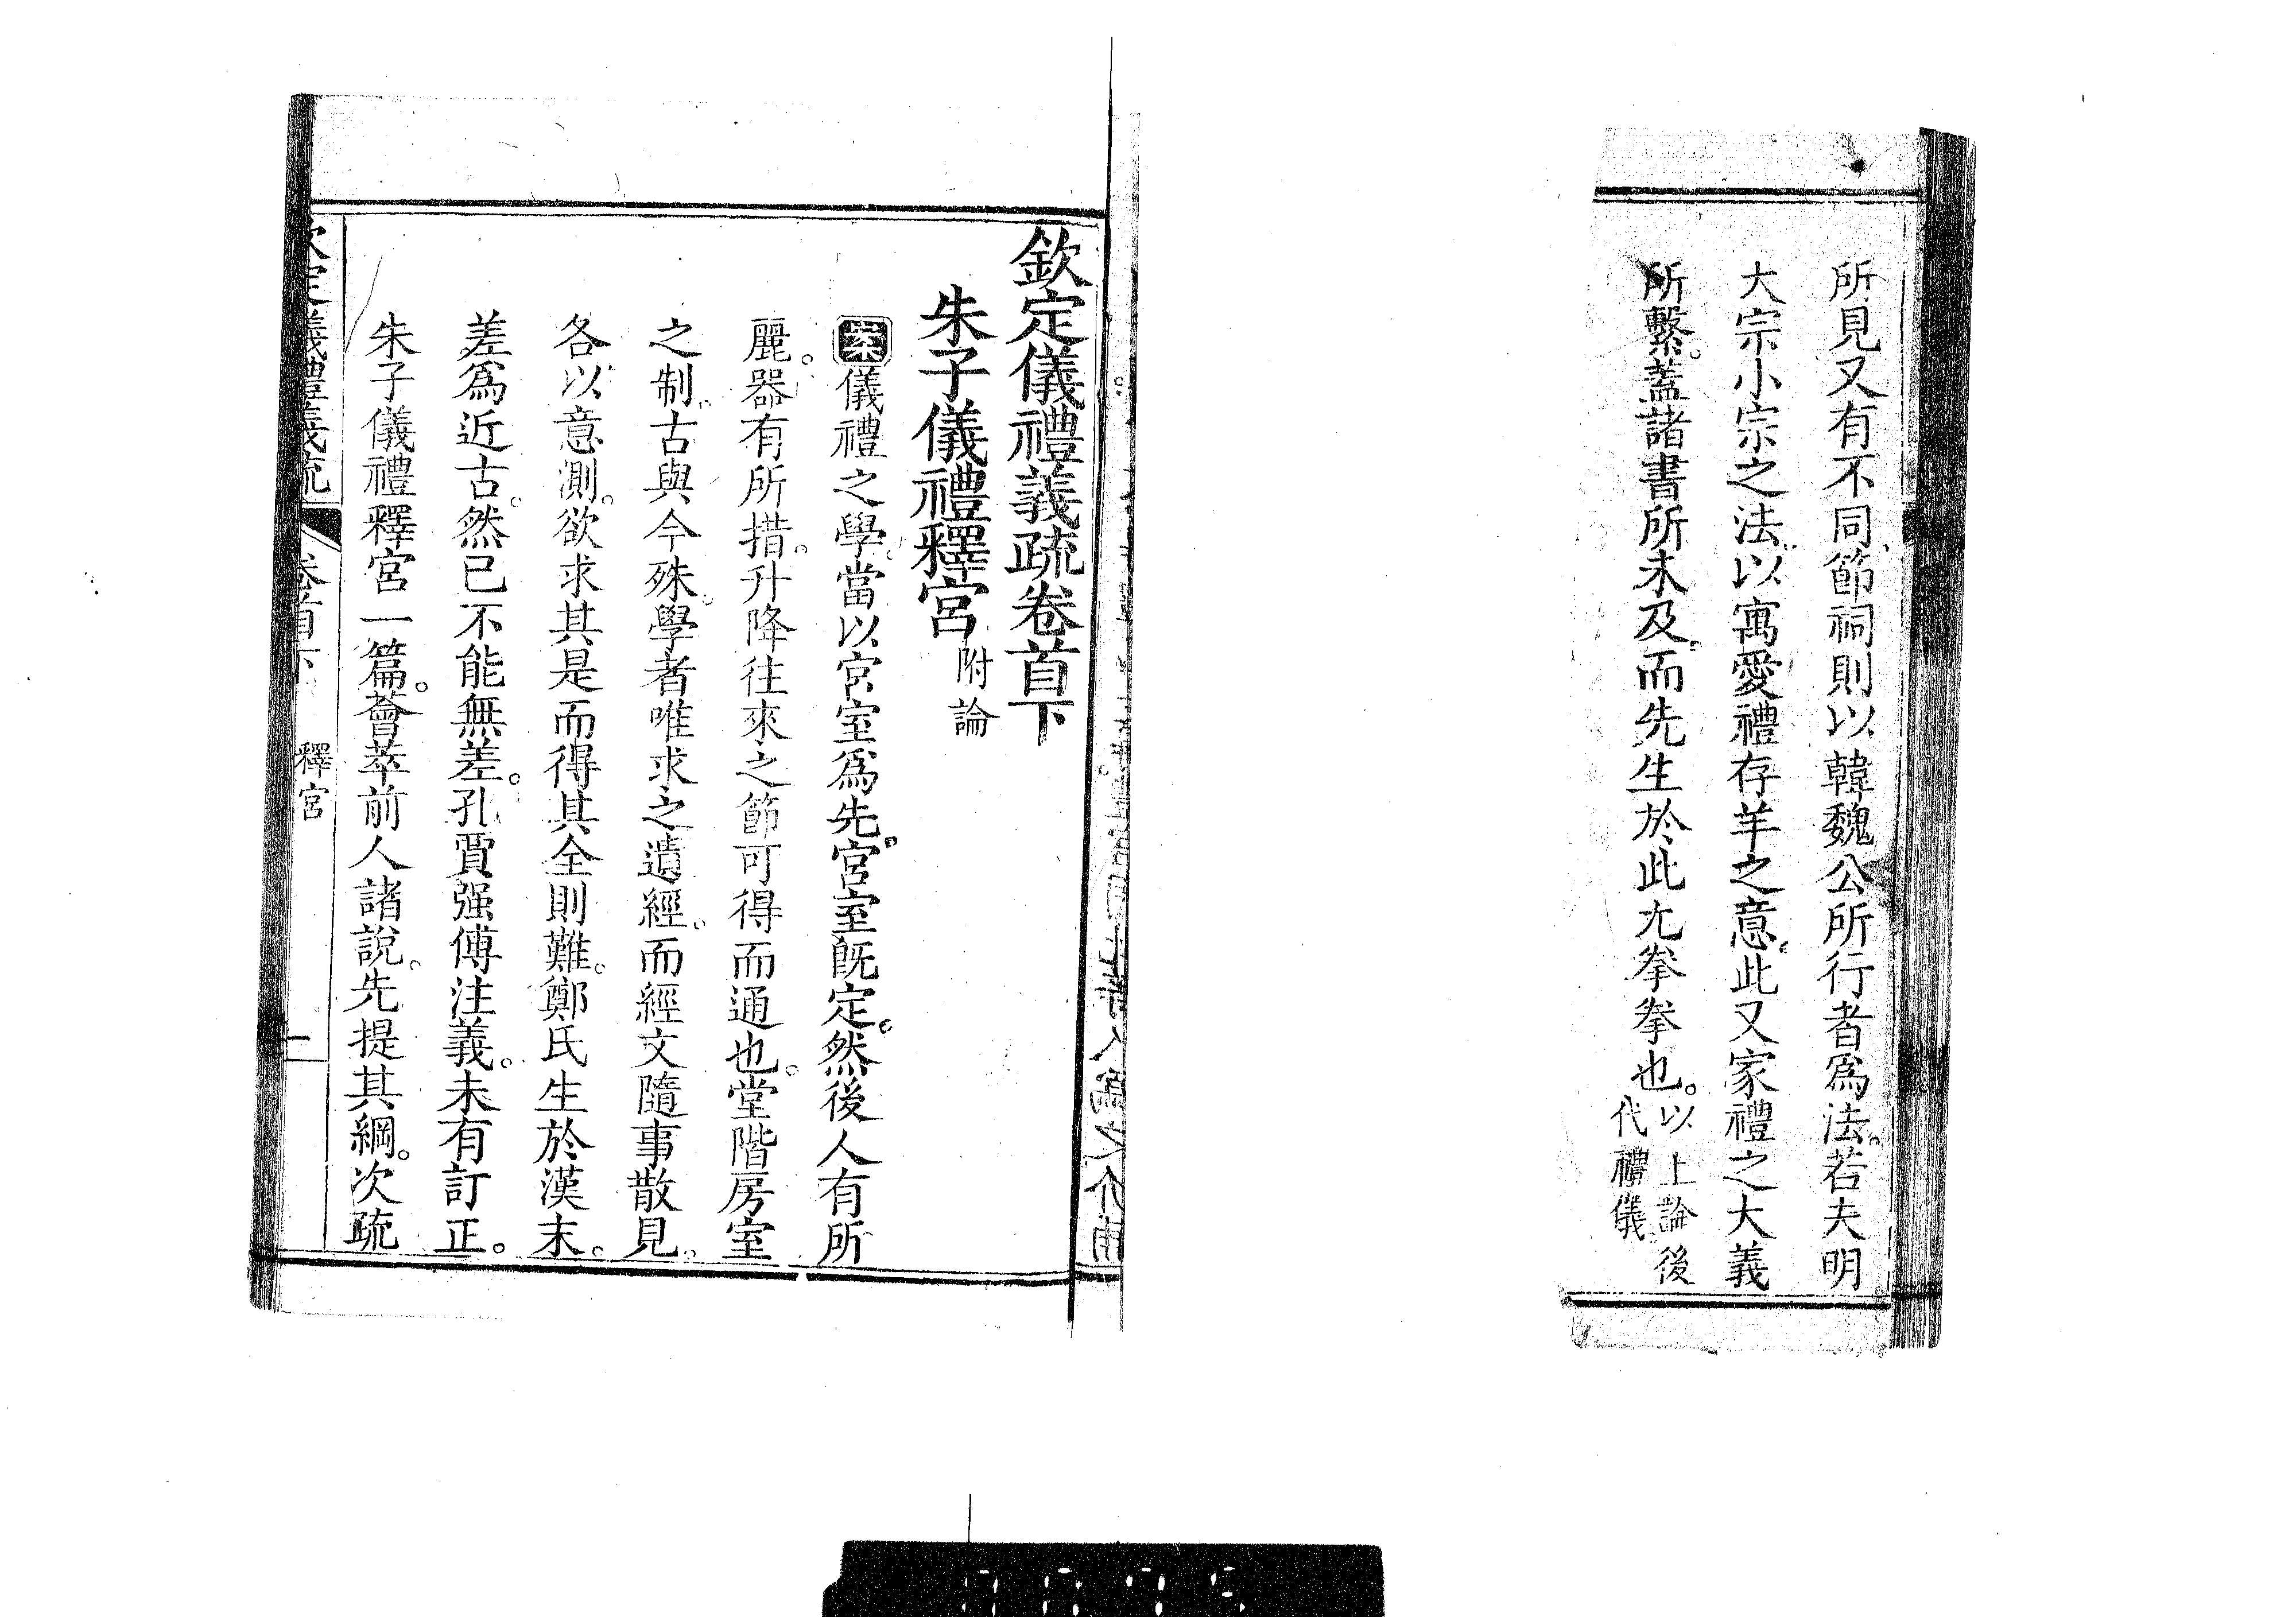 所見又有不同節祠則以韓魏公所行者爲法。若夫明
大宗小宗之法以寓愛禮存羊之意。此又家禮之大義
所繫。蓋諸書所未及。而先生於此尤拳拳也。以上論後
代禮儀
欽定儀禮義疏卷首下
朱子儀禮釋宮附論
案儀禮之學。當以宮室爲先。宮室旣定。然後人有所
麗。器有所措。升降往來之節可得而通也。堂階房室
之制。古與今殊。學者唯求之遺經。而經文隨事散見。
各以意測。欲求其是而得其全則難。鄭氏生於漢末。
差爲近古。然已不能無差。孔賈强傅注義。未有訂正。
朱子儀禮釋宮一篇。薈萃前人諸說。先提其綱。次疏
欽定儀禮義疏 卷首下 釋宮 一